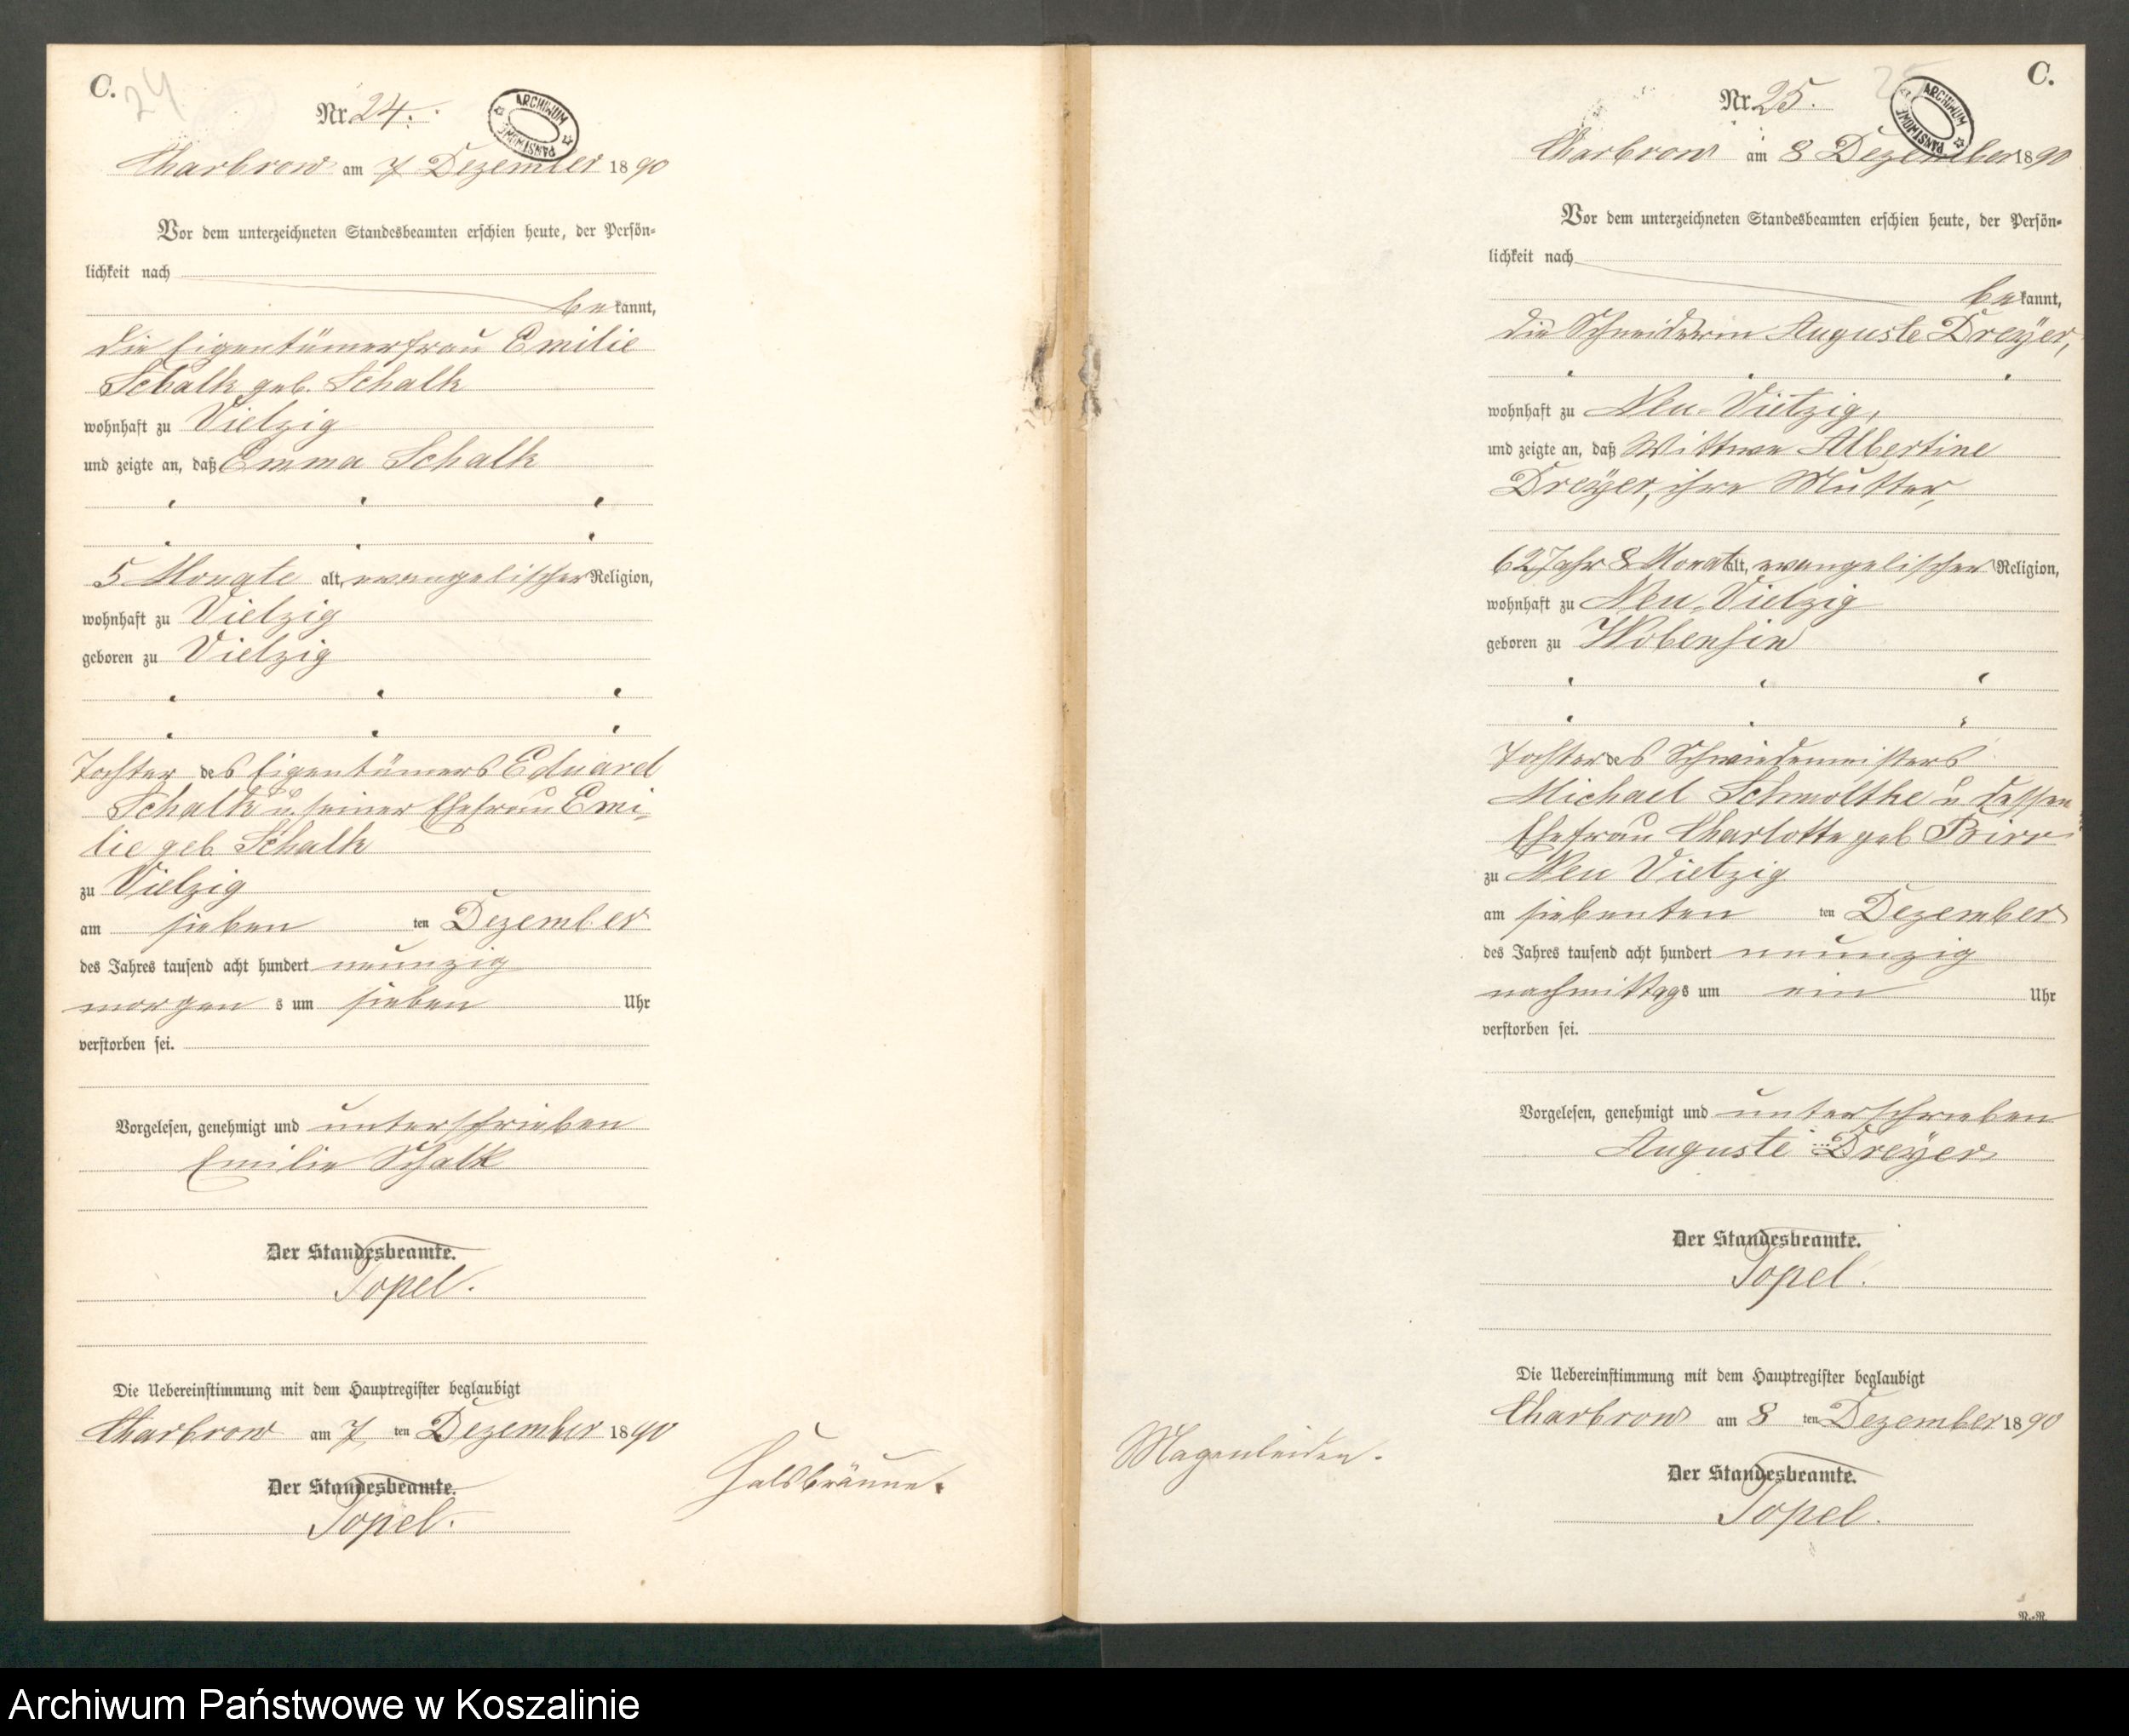 C.
24
Nr. 24.
ARCHIWUM PAŃSTWOWE
Charbrow am 7 Dezember 1890
Vor dem unterzeichneten Standesbeamten erschien heute, der Persön-
lichkeit nach
bekannt,
die Eigentümerfrau Emilie
Schalk geb. Schalk
wohnhaft zu Vietzig
und zeigte an, daß Emma Schalk
5 Monate alt, evangelischer Religion,
wohnhaft zu Vietzig
geboren zu Vietzig
Tochter des Eigentümers Eduard
Schalk u. seiner Ehefrau Emi-
lie geb. Schalk
zu Vietzig
am sieben ten Dezember
des Jahres tausend acht hundert neunzig
morgens um sieben Uhr
verstorben sei.
Vorgelesen, genehmigt und unterschrieben
Emilie Schalk
Der Standesbeamte.
Topel.
Die Uebereinstimmung mit dem Hauptregister beglaubigt
Charbrow am 7 ten Dezember 1890
Der Standesbeamte.
Topel.
Halsbräune.
C.
25
Nr. 25.
ARCHIWUM PAŃSTWOWE
Charbrow am 8 Dezember 1890
Vor dem unterzeichneten Standesbeamten erschien heute, der Persön-
lichkeit nach
bekannt,
die Schneiderin Auguste Dreÿer,
wohnhaft zu Neu-Vietzig,
und zeigte an, daß Wittwe Albertine
Dreÿer, ihre Mutter,
62 Jahr 8 Monat alt, evangelischer Religion,
wohnhaft zu Neu-Vietzig
geboren zu Wobensin
Tochter des Schmiedemeisters
Michael Schmoltke u dessen
Ehefrau Charlotte geb Birr
zu Neu Vietzig
am siebenten ten Dezember
des Jahres tausend acht hundert neunzig
nachmittags um ein Uhr
verstorben sei.
Vorgelesen, genehmigt und unterschrieben
Auguste Dreÿer
Der Standesbeamte.
Topel.
Die Uebereinstimmung mit dem Hauptregister beglaubigt
Charbrow am 8 ten Dezember 1890
Der Standesbeamte.
Topel.
Magenleiden.
N.-N.
Archiwum Państwowe w Koszalinie